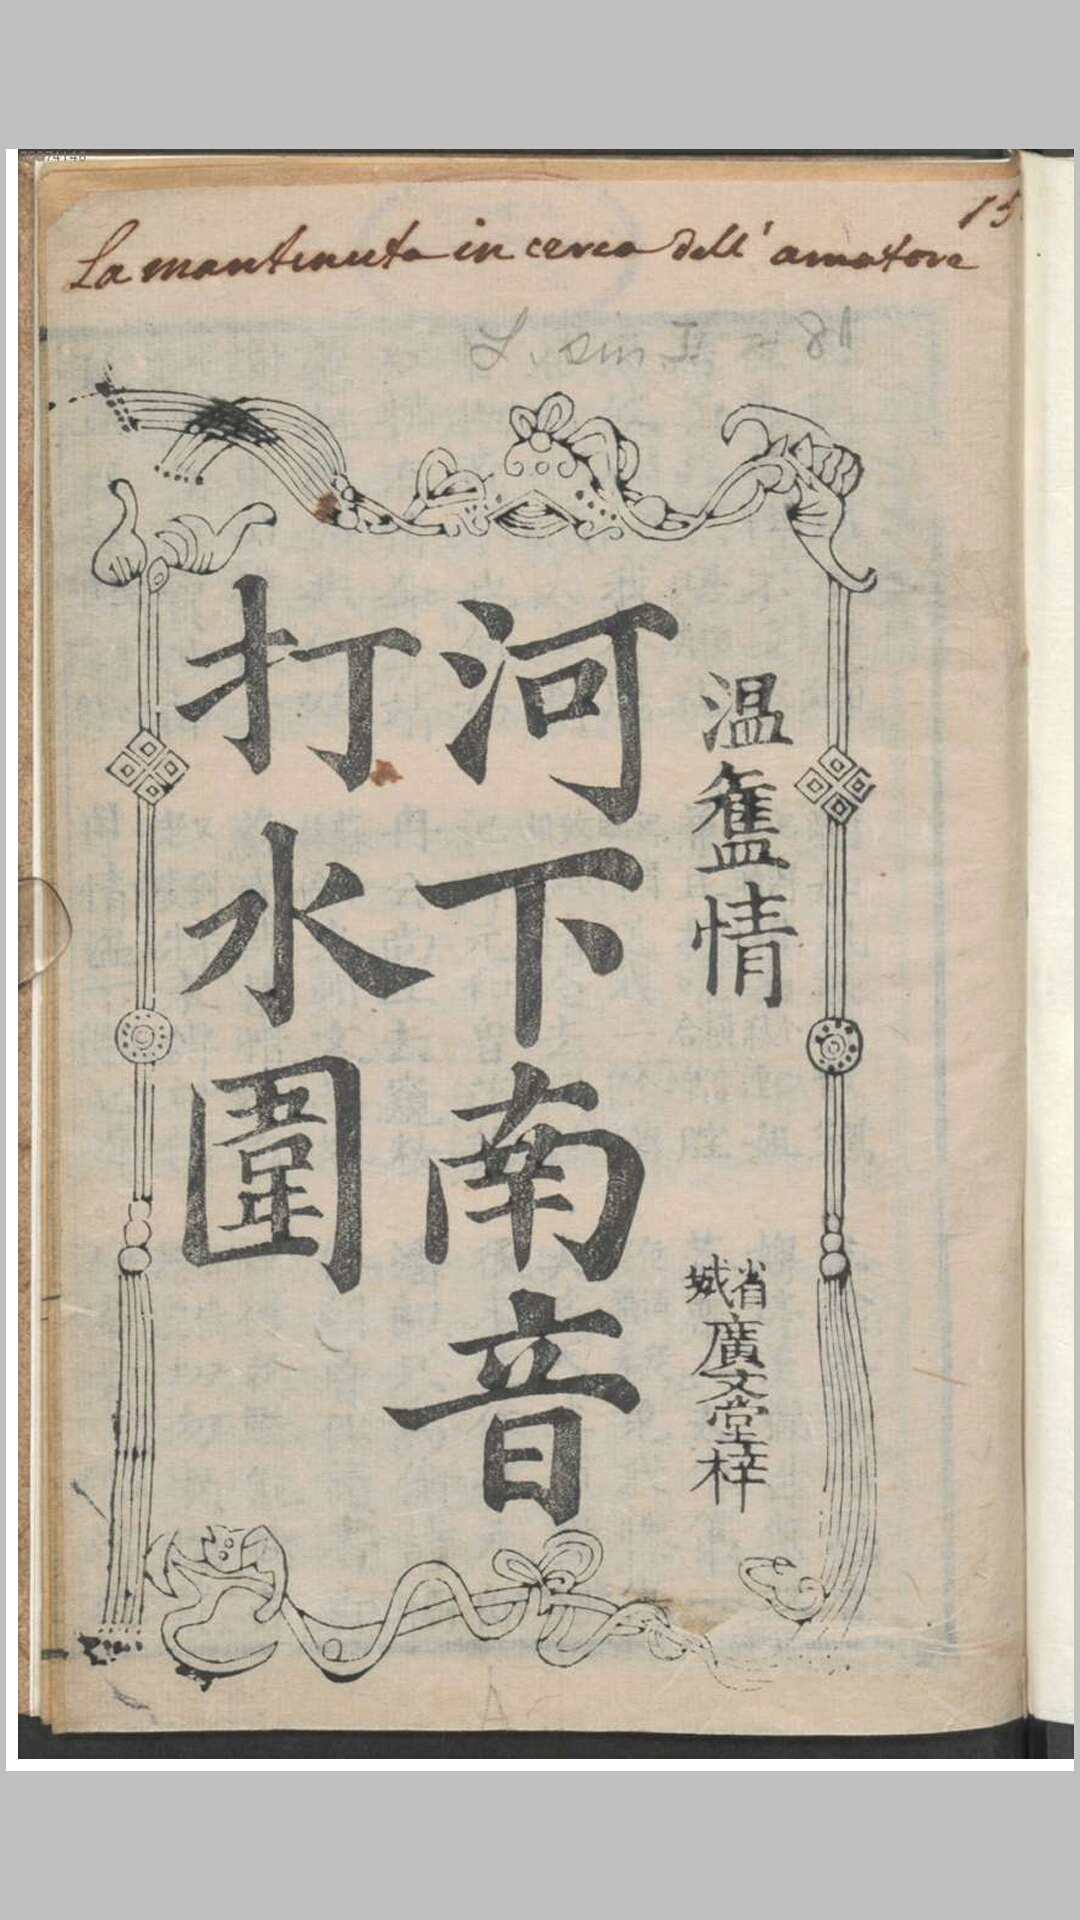 15
La mantenuta in cerca dell' amatore
L. sin. I
溫舊情
省城廣文堂梓
河下南音
打水圍